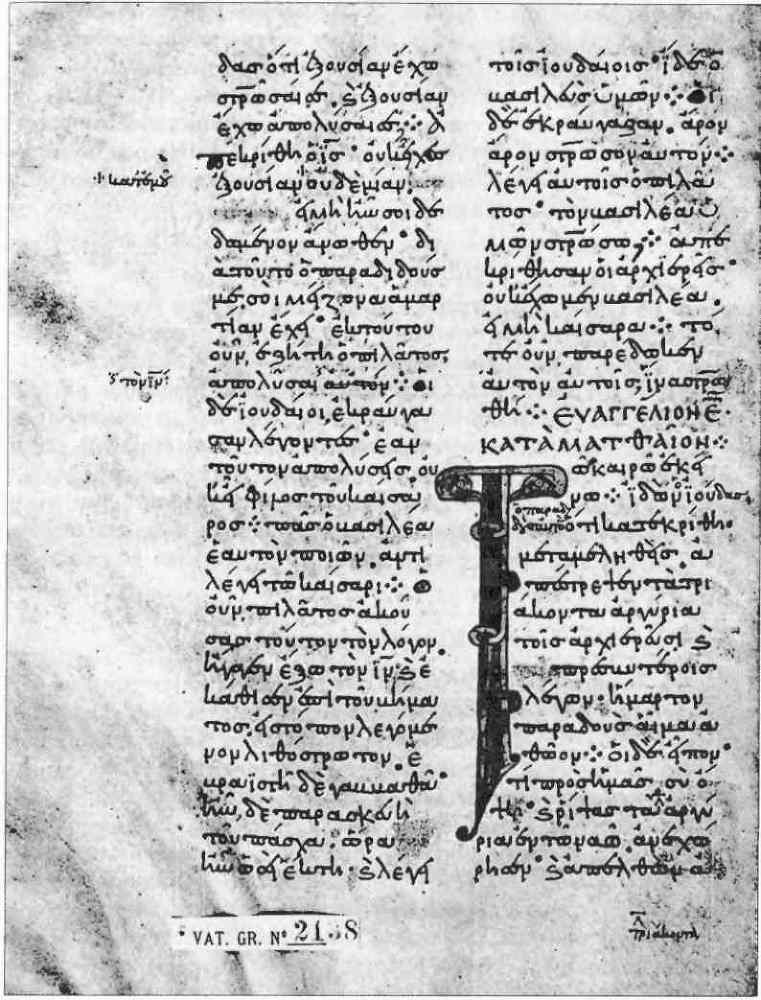 δας ὅτι ἐξουσίαν ἔχω
στρῶσαί σε. ϗ ἐξουσίαν
ἔχω ἀπολῦσαί σε ⁘ ἀ
πεκρίθη ὁ ι̅ς̅· οὐκ εἶχες
+ κατ' ἐμοῦ
ἐξουσίαν οὐδεμίαν
εἰ μὴ ἦν σοι δε
δομένον ἄνωθεν· δι
ὰ τοῦτο ὁ παραδιδούς
μέ σοι μείζονα ἁμαρ
τίαν ἔχει· ἐκ τούτου
οὖν, ἐζήτη ὁ πιλᾶτος,
τὸν ι̅ν̅
ἀπολῦσαι αὐτόν ⁘ οἱ
δὲ ἰουδαῖοι, ἐκραύγα
σαν λέγοντες· ἐὰν
τοῦτον ἀπολύσης, οὐ
κ εἶ φίλος τοῦ καίσα
ρος ⁘ πᾶς ὁ βασιλέα
ἑαυτὸν ποιῶν, ἀντι
λέγει τῶ καίσαρι ⁘ ὁ
οὖν πιλᾶτος ἀκού
σας τοῦτον τὸν λόγον,
ἤγαγεν ἔξω τὸν ι̅ν̅ ϗ ἐ
κάθισεν ἐπὶ τοῦ βήμα
τος, εἰς τόπον λεγόμε
νον λιθόστρωτον, ἑ
βραϊστὶ δὲ γαββαθᾶ·
ἦν δὲ παρασκευὴ
τοῦ πάσχα· ὥρα
ἦν ὡσεὶ ἕκτη· ϗ λέγει
τοῖς ἰουδαίοις· ἴδε ὁ
βασιλεὺς ὑμῶν ⁘ οἱ
δὲ ἐκραύγαζαν. ἆρον
ἆρον στρῶσον αὐτόν ⁘
λέγει αὐτοῖς ὁ πιλᾶ
τος· τὸν βασιλέα ὑ
μῶν στρώσω; ⁘ ἀπε
κρίθησαν οἱ ἀρχιερεῖς·
οὐκ ἔχομεν βασιλέα.
εἰ μὴ καίσαρα ⁘ τό
τε οὖν, παρέδωκεν
αὐτὸν αὐτοῖς, ἵνα στρω
θῆ ⁘ ΕΥΑΓΓΕΛΙΟΝ Ε̅
ΚΑΤΑ ΜΑΤΘΑΙΟΝ ⁘
Τῶ καιρῶ ἐκεί
νω ⁘ ἰδὼν ἰούδας,
ὁ παραδι
δοὺς αὐτὸν ὅτι κατεκρίθη·
μεταμεληθεὶς ἀ
πέστρεψεν τὰ τρι
άκοντα ἀργύρια
τοῖς ἀρχιερεῦσι ϗ
πρεσβυτέροις
λέγων· ἥμαρτον
παραδοὺς αἷμα ἀ
θῶον ⁘ οἱ δὲ εἶπον·
τί πρὸς ἡμᾶς σὺ ὄ
ψη· ϗ ῥίψας τὰ ἀργύ
ρια ἐν τῶ ναῶ. ἀνεχώ
ρησεν· ϗ ἀπελθὼν ἀ
VAT. GR. Nº